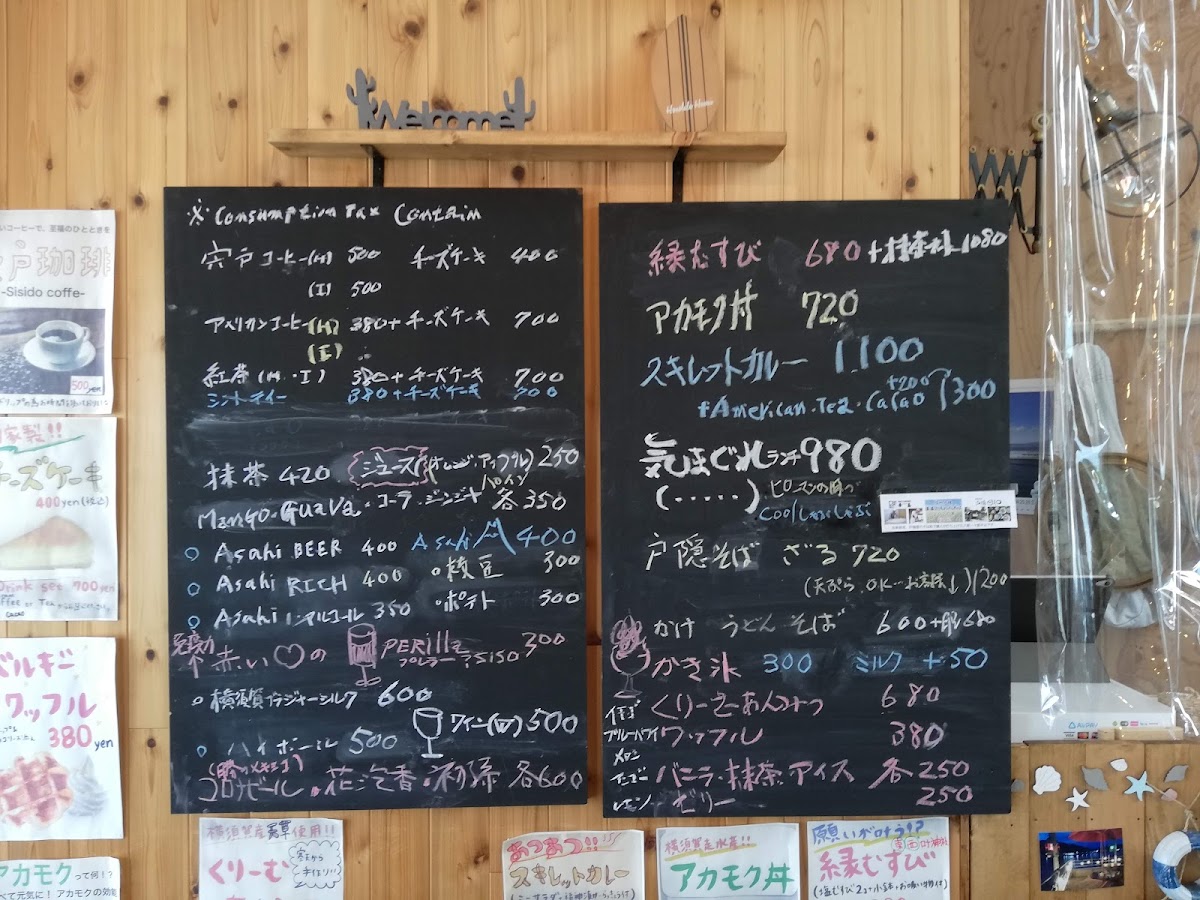 Welcome
※ Consumption Tax Contain
宍戸コーヒー(H) 500 チーズケーキ 400
(I) 500
アメリカンコーヒー(H) 380+チーズケーキ 700
(I)
紅茶(H・I) 380+チーズケーキ 700
ミントティー 380+チーズケーキ 700
抹茶 420 ジュース(オレンジ・アップル) 250
パイン
Mango・Guava・コーラ・ジンジャ 各350
Asahi BEER 400 Asahi 400
Asahi RICH 400 枝豆 300
Asahi ノンアルコール 350 ポテト 300
免疫力 赤い♡の PERilla 300
横須賀ブラジャーシルク 600
ワイン(W) 500
ハイボール 500
コロナビール・花泫香・初孫 各600
縁むすび 680 1080
アカモク丼 720
スキレットカレー 1100
+200
+American・Tea・CaCaO 1300
気まぐれランチ 980
(・・・・・)
戸隠そば ざる 720
(天ぷら OK 1200
かけ うどん そば 600
かき氷 300 ミルク +50
いちご くりーむあんみつ 680
ブルーハワイ ワッフル 380
メロン
マンゴー バニラ・抹茶・アイス 各250
レモン ゼリー 250
戸珈琲
-Sisido coffe-
500yen
家製!!
チーズケーキ
400yen(税込)
Drink set 700yen
ベルギー
ワッフル
380yen
アカモクって何!?
べて元気に!アカモクの効
横須賀産 使用!!
くりーむ
あつあつ!!
スキレットカレー
横須賀走水産!!
アカモク丼
願いが叶う!?
縁むすび